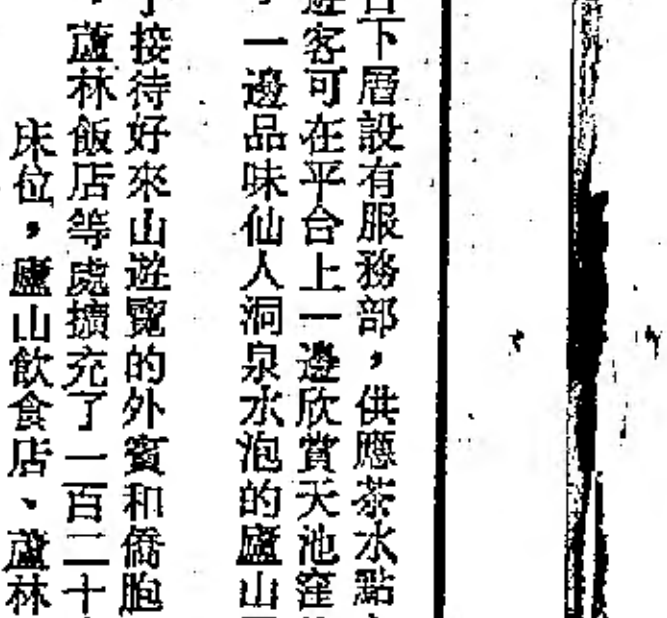 下層設有服務部，供應茶水點
遊客可在平台上一邊欣賞天池窪
，一邊品味仙人洞泉水泡的廬山
接待好來山遊覽的外賓和僑胞
，蘆林飯店等處擴充了一百二十
床位，廬山飲食店、蘆林